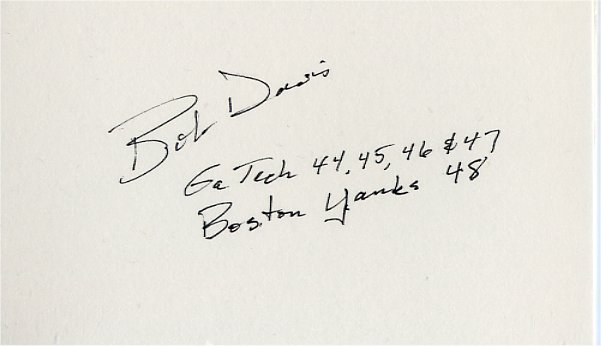 Bob Davis
Ga Tech 44, 45, 46 & 47
Boston Yanks 48